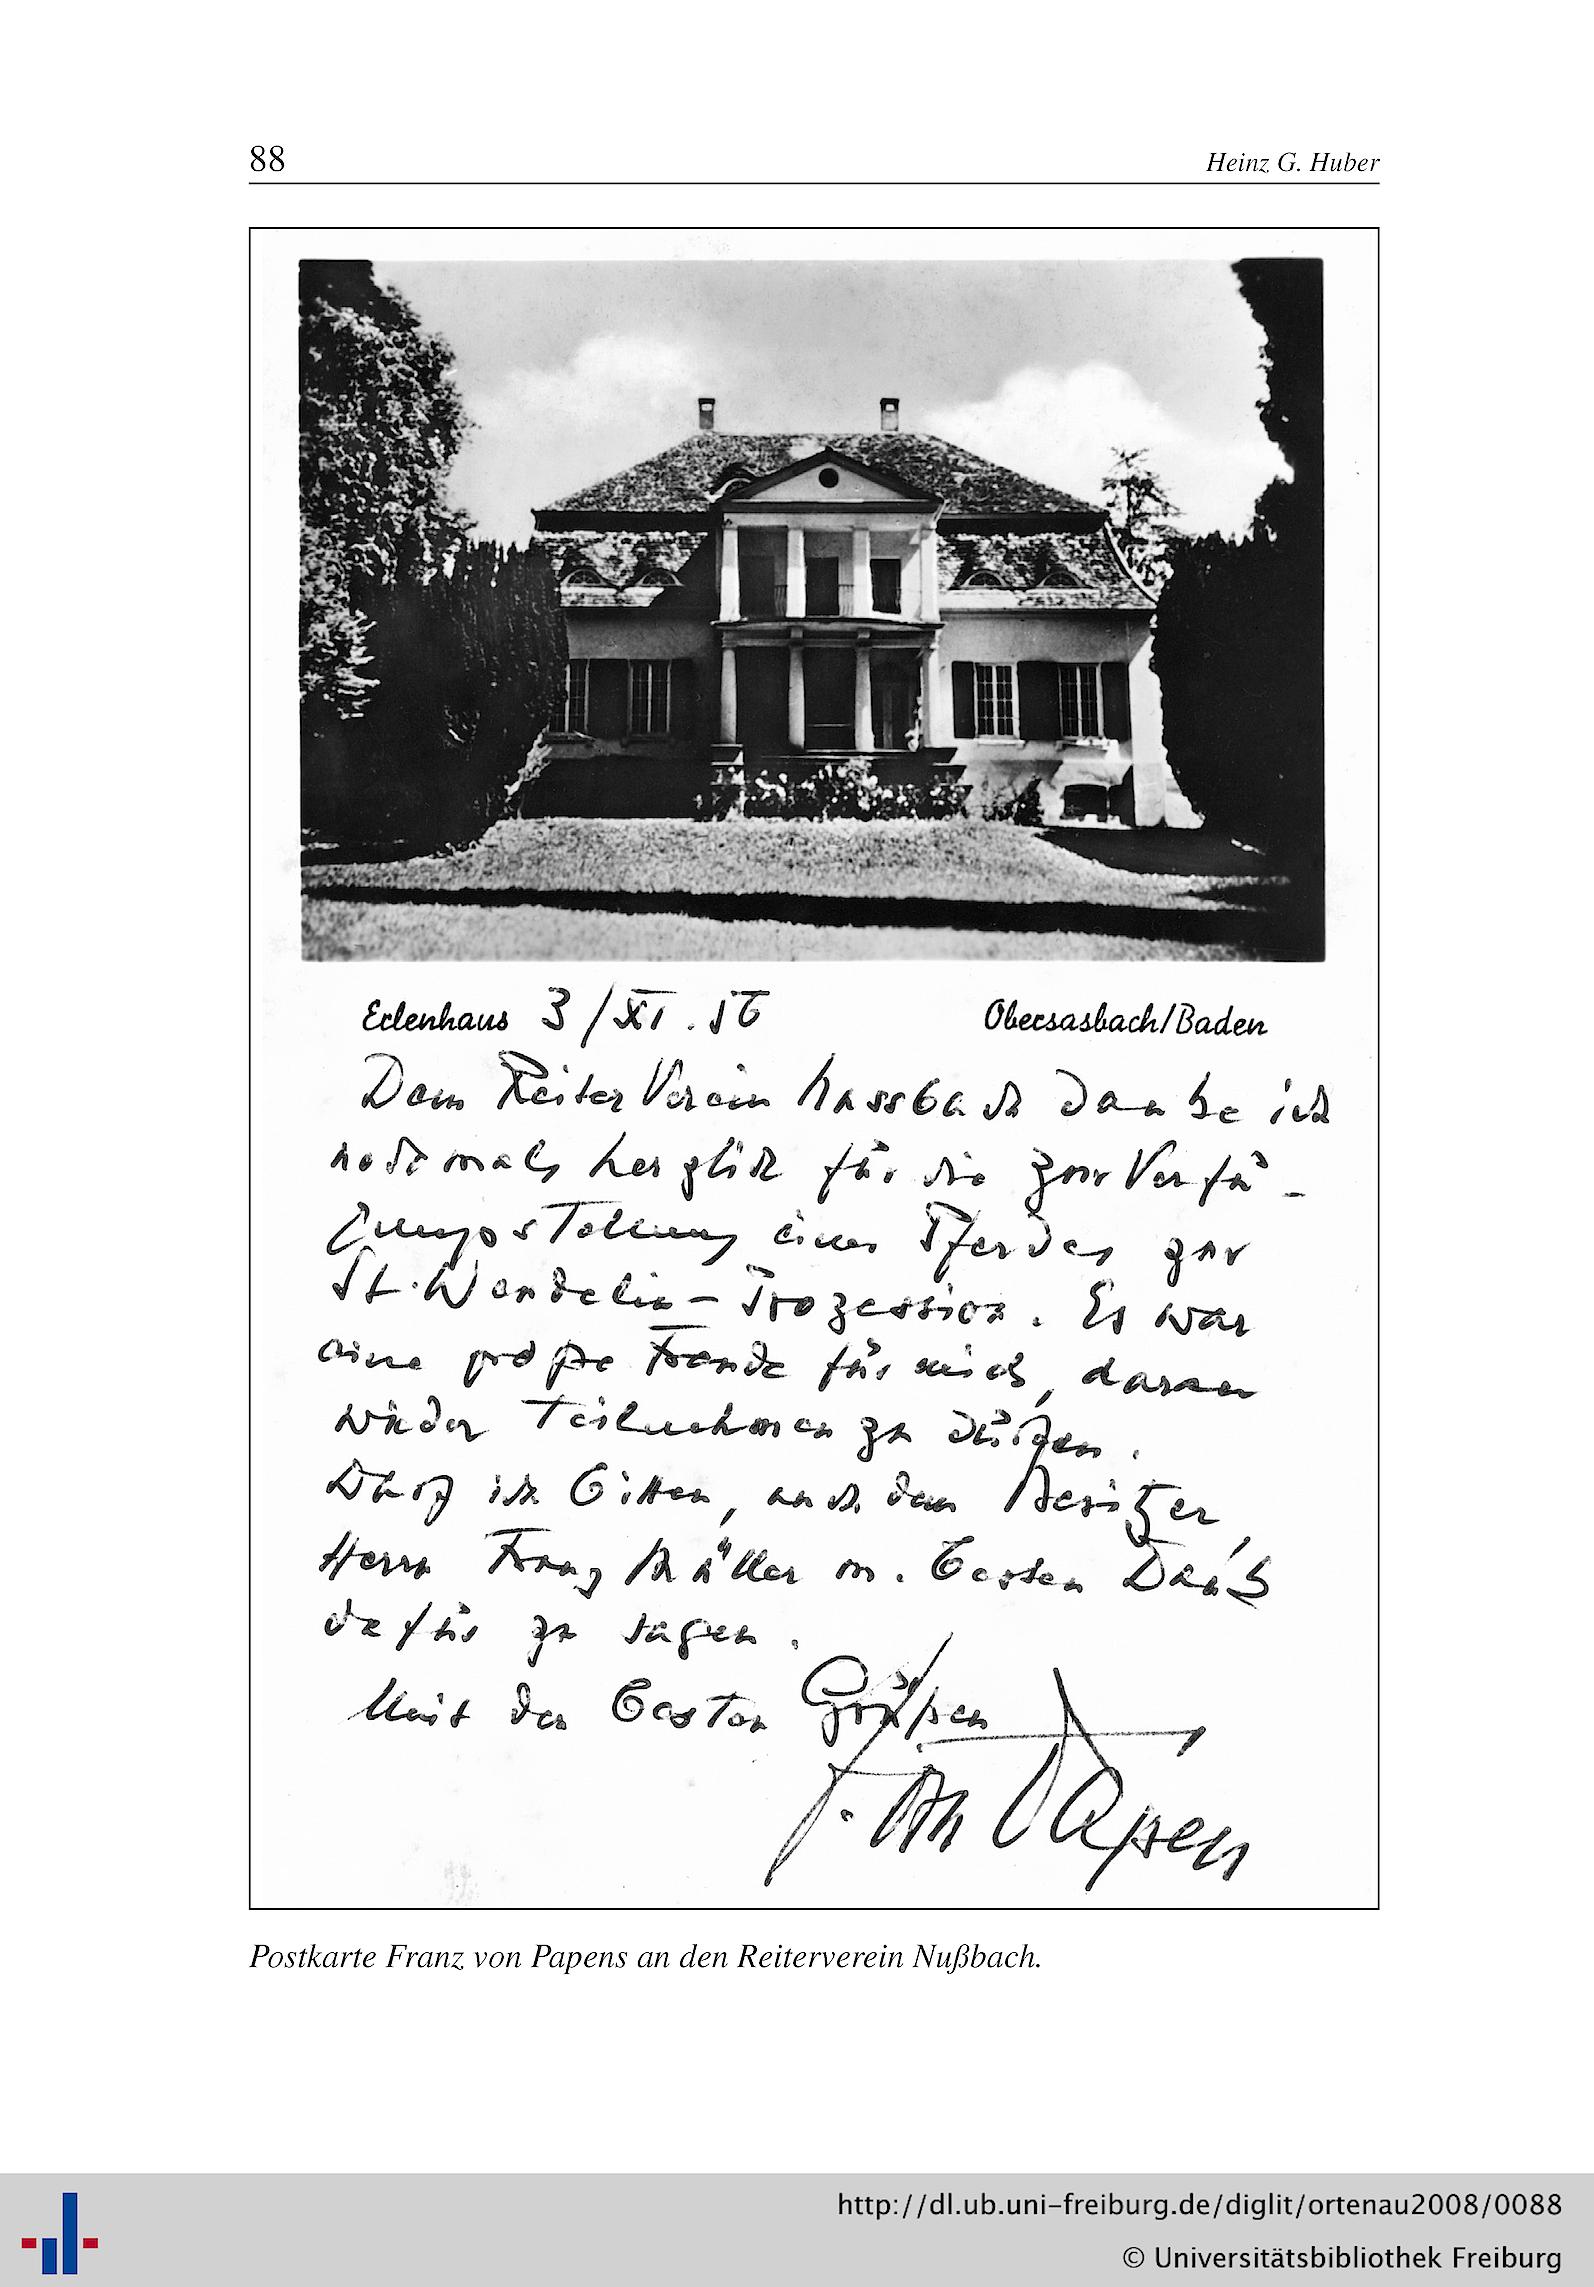 88
Heinz G. Huber
Erlenhaus 3/XI.56
Obersasbach/Baden
Dem Reiter Verein Nussbach danke ich
nochmals herzlich für die zur Verfü-
gungsstellung eines Pferdes zur
St. Wendelin-Prozession. Es war
eine große Freude für mich, daran
wieder Teilnehmen zu dürfen.
Darf ich bitten, auch dem Besitzer,
Herrn Franz Müller m. besten Dank
dafür zu sagen.
Mit den besten Grüßen
F. von Papen
Postkarte Franz von Papens an den Reiterverein Nußbach.
http://dl.ub.uni-freiburg.de/diglit/ortenau2008/0088
© Universitätsbibliothek Freiburg